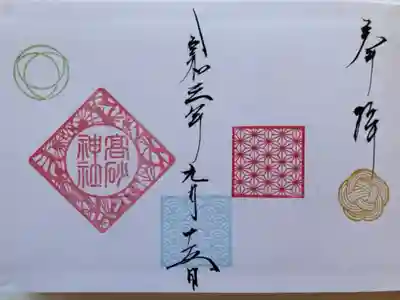 奉拝
令和三年九月十五日
高砂
神社